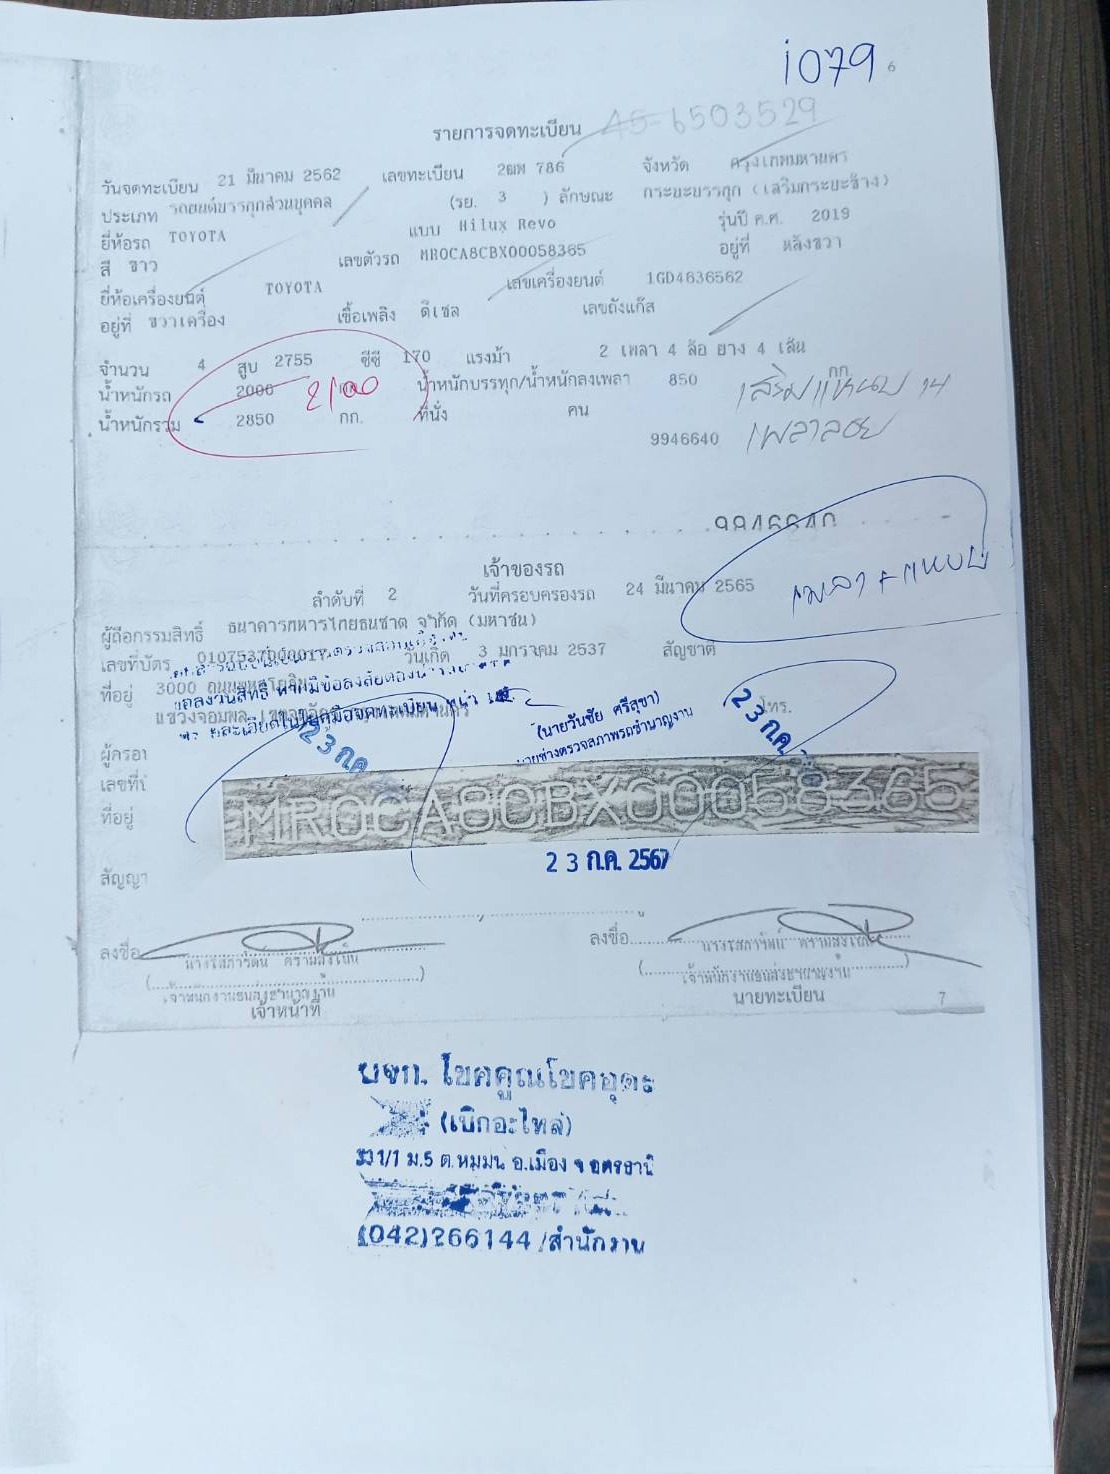 i079
6
รายการจดทะเบียน A5-6503529
วันจดทะเบียน 21 มีนาคม 2562 เลขทะเบียน 2ฒฬ 786 จังหวัด กรุงเทพมหานคร
ประเภท รถยนต์บรรทุกส่วนบุคคล (รย. 3 ) ลักษณะ กระบะบรรทุก (เสริมกระบะข้าง)
ยี่ห้อรถ TOYOTA แบบ Hilux Revo รุ่นปี ค.ศ. 2019
สี ขาว เลขตัวรถ MR0CA8CBX00058365 อยู่ที่ หลังขวา
ยี่ห้อเครื่องยนต์ TOYOTA เลขเครื่องยนต์ 1GD4636562
อยู่ที่ ขวาเครื่อง เชื้อเพลิง ดีเซล เลขถังแก๊ส
จำนวน 4 สูบ 2755 ซีซี 170 แรงม้า 2 เพลา 4 ล้อ ยาง 4 เส้น
น้ำหนักรถ 2000 2100 น้ำหนักบรรทุก/น้ำหนักลงเพลา 850 กก.
น้ำหนักรวม 2850 กก. ที่นั่ง คน
เสริมแหนบ 14
9946640 เพลาลอย
9946640
เพลา + แหนบ
เจ้าของรถ
ลำดับที่ 2 วันที่ครอบครองรถ 24 มีนาคม 2565
ผู้ถือกรรมสิทธิ์ ธนาคารทหารไทยธนชาต จำกัด (มหาชน)
เลขที่บัตร วันเกิด 3 มกราคม 2537 สัญชาติ
ที่อยู่ 3000 ถนนพหลโยธิน
แขวงจอมพล
โทร.
(นายวันชัย ศรีสุขา)
นายช่างตรวจสภาพรถชำนาญงาน
23 ก.ค.
23 ก.ค.
เลขที่
ที่อยู่
MR0CA8CBX00058365
23 ก.ค. 2567
สัญญา
ลงชื่อ
ลงชื่อ
เจ้าพนักงานขนส่งชำนาญงาน
เจ้าพนักงานขนส่งชำนาญงาน
เจ้าหน้าที่
นายทะเบียน
7
บจก. โชคคูณโชคอุดร
(เบิกอะไหล่)
331/1 ม.5 ต.หมูม่น อ.เมือง จ.อุดรธานี
(042)266144 /สำนักงาน